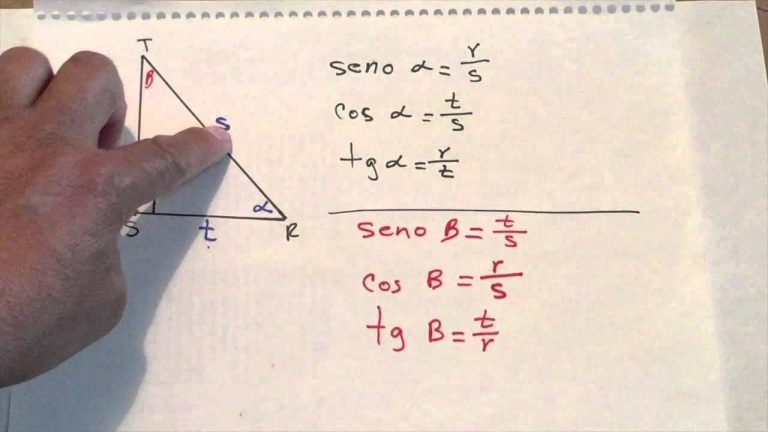 T
B
s
S
t
α
R
seno α = r/s
cos α = t/s
tg α = r/t
seno B = t/s
cos B = r/s
tg B = t/r